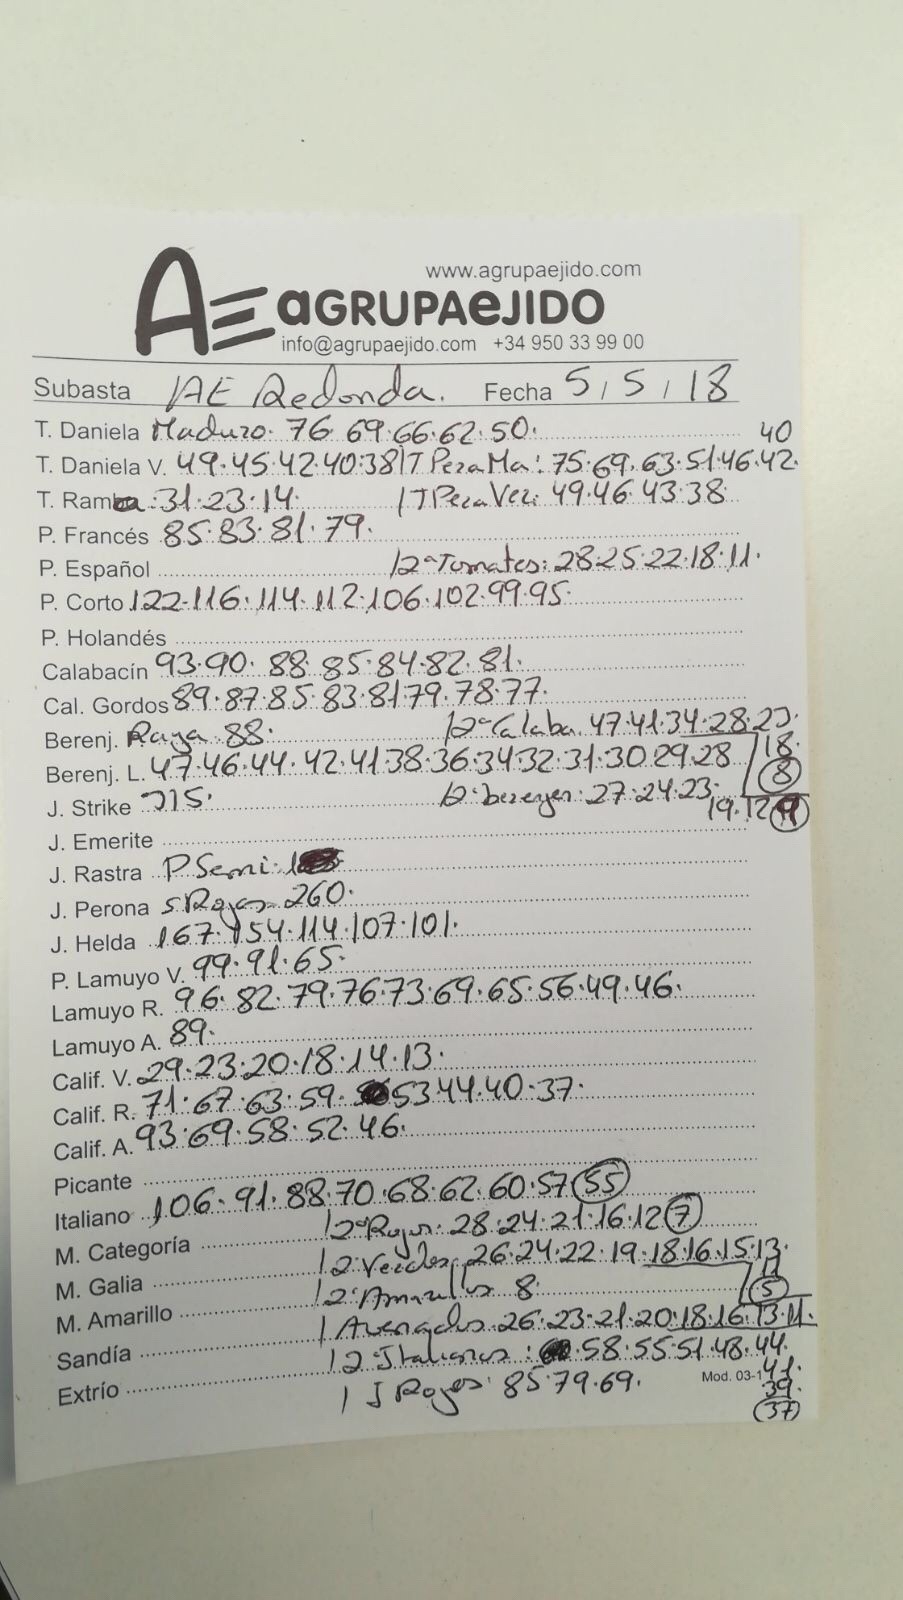 www.agrupaejido.com
AE aGRUPAeJIDO
info@agrupaejido.com +34 950 33 99 00
Subasta AE Redonda. Fecha 5/5/18
T. Daniela Maduro. 76.69.66.62.50. 40
T. Daniela V. 49.45.42.40.38 | T Pera Ma: 75.69.63.51.46.42.
T. Ramba: 31.23.14. | T Pera Ver: 49.46.43.38.
P. Francés 85.83.81.79.
P. Español | 2ª Tomates: 28.25.22.18.11.
P. Corto 122.116.114.112.106.102.99.95.
P. Holandés
Calabacín 93.90.88.85.84.82.81.
Cal. Gordos 89.87.85.83.81.79.78.77.
Berenj. Raya 88. | 2ª Calaba. 47.41.34.28.23.
18.
Berenj. L. 47.46.44.42.41.38.36.34.32.31.30.29.28 8
J. Strike 215. | 2ª berenjen: 27.24.23.
19.12
J. Emerite
J. Rastra P Semi:
J. Perona S Rojas 260.
J. Helda 167.154.114.107.101.
P. Lamuyo V. 99.91.65.
Lamuyo R. 96.82.79.76.73.69.65.56.49.46.
Lamuyo A. 89.
Calif. V. 29.23.20.18.14.13.
Calif. R. 71.67.63.59. 53.44.40.37.
Calif. A. 93.69.58.52.46.
Picante
Italiano 106.91.88.70.68.62.60.57 55
M. Categoría | 2ª Rojos: 28.24.21.16.12 7
M. Galia | 2 Verdes: 26.24.22.19.18.16.15.13.
11
M. Amarillo | 2ª Amarillos 8. 5
Sandía | Avengados 26.23.21.20.18.16.13.11.
Extrío | 2ª Italianos: 58.55.51.48.44.
| J Rojos: 85.79.69. Mod. 03-1 41.
39.
(37)